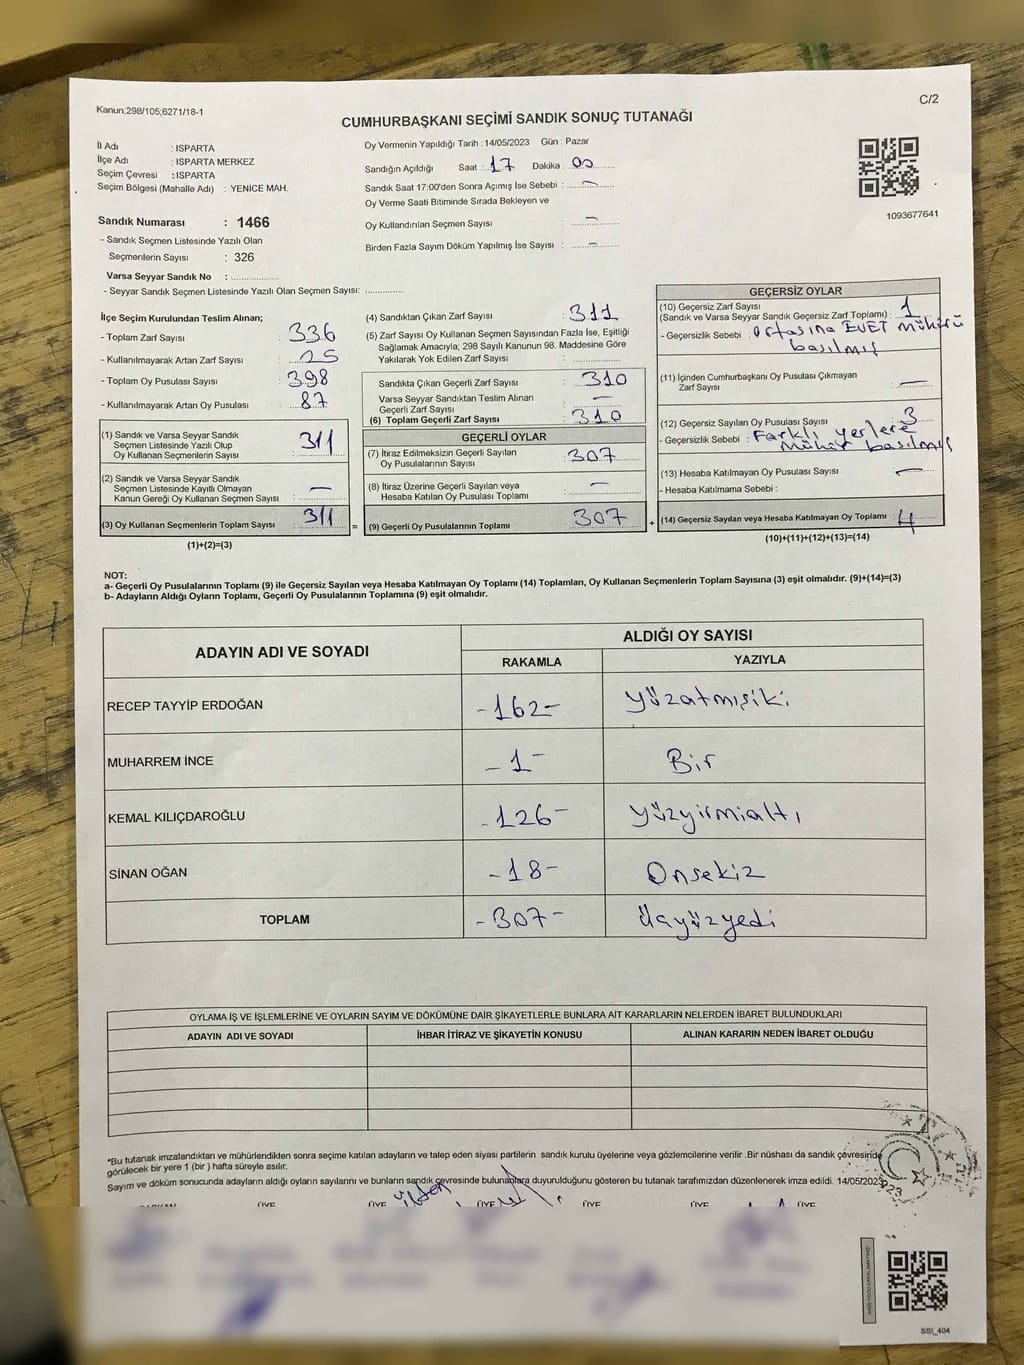 Kanun;298/105;6271/18-1
C/2
CUMHURBAŞKANI SEÇİMİ SANDIK SONUÇ TUTANAĞI
İl Adı : ISPARTA
İlçe Adı : ISPARTA MERKEZ
Seçim Çevresi : ISPARTA
Seçim Bölgesi (Mahalle Adı) : YENICE MAH.
Sandık Numarası : 1466
- Sandık Seçmen Listesinde Yazılı Olan
Seçmenlerin Sayısı : 326
Varsa Seyyar Sandık No :
- Seyyar Sandık Seçmen Listesinde Yazılı Olan Seçmen Sayısı:
Oy Vermenin Yapıldığı Tarih : 14/05/2023 Gün : Pazar
Sandığın Açıldığı Saat : 17 Dakika : 00
Sandık Saat 17:00'den Sonra Açımış İse Sebebi : —
Oy Verme Saati Bitiminde Sırada Bekleyen ve
Oy Kullandırılan Seçmen Sayısı : —
Birden Fazla Sayım Döküm Yapılmış İse Sayısı : —
1093677641
İlçe Seçim Kurulundan Teslim Alınan;
- Toplam Zarf Sayısı : 336
- Kullanılmayarak Artan Zarf Sayısı : 25
- Toplam Oy Pusulası Sayısı : 398
- Kullanılmayarak Artan Oy Pusulası : 87
(1) Sandık ve Varsa Seyyar Sandık
Seçmen Listesinde Yazılı Olup
Oy Kullanan Seçmenlerin Sayısı : 311
(2) Sandık ve Varsa Seyyar Sandık
Seçmen Listesinde Kayıtlı Olmayan
Kanun Gereği Oy Kullanan Seçmen Sayısı : —
(3) Oy Kullanan Seçmenlerin Toplam Sayısı : 311
(1)+(2)=(3)
(4) Sandıktan Çıkan Zarf Sayısı : 311
(5) Zarf Sayısı Oy Kullanan Seçmen Sayısından Fazla İse, Eşitliği
Sağlamak Amacıyla; 298 Sayılı Kanunun 98. Maddesine Göre
Yakılarak Yok Edilen Zarf Sayısı :
Sandıkta Çıkan Geçerli Zarf Sayısı : 310
Varsa Seyyar Sandıktan Teslim Alınan
Geçerli Zarf Sayısı : —
(6) Toplam Geçerli Zarf Sayısı : 310
GEÇERLİ OYLAR
(7) İtiraz Edilmeksizin Geçerli Sayılan
Oy Pusulasının Sayısı : 307
(8) İtiraz Üzerine Geçerli Sayılan veya
Hesaba Katılan Oy Pusulası Toplamı : —
= (9) Geçerli Oy Pusulalarının Toplamı : 307
GEÇERSİZ OYLAR
(10) Geçersiz Zarf Sayısı
(Sandık ve Varsa Seyyar Sandık Geçersiz Zarf Toplamı) : 1
- Geçersizlik Sebebi : Ortasına EVET mührü
basılmış
(11) İçinden Cumhurbaşkanı Oy Pusulası Çıkmayan
Zarf Sayısı : —
(12) Geçersiz Sayılan Oy Pusulası Sayısı : 3
- Geçersizlik Sebebi : Farklı yerlere
mühür basılmış
(13) Hesaba Katılmayan Oy Pusulası Sayısı : —
- Hesaba Katılmama Sebebi :
+ (14) Geçersiz Sayılan veya Hesaba Katılmayan Oy Toplamı : 4
(10)+(11)+(12)+(13)=(14)
NOT:
a- Geçerli Oy Pusulalarının Toplamı (9) ile Geçersiz Sayılan veya Hesaba Katılmayan Oy Toplamı (14) Toplamları, Oy Kullanan Seçmenlerin Toplam Sayısına (3) eşit olmalıdır. (9)+(14)=(3)
b- Adayların Aldığı Oyların Toplamı, Geçerli Oy Pusulalarının Toplamına (9) eşit olmalıdır.
ADAYIN ADI VE SOYADI
ALDIĞI OY SAYISI
RAKAMLA YAZIYLA
RECEP TAYYİP ERDOĞAN -162- yüzatmışiki
MUHARREM İNCE -1- Bir
KEMAL KILIÇDAROĞLU -126- yüzyirmialtı
SİNAN OĞAN -18- Onsekiz
TOPLAM -307- Üçyüzyedi
OYLAMA İŞ VE İŞLEMLERİNE VE OYLARIN SAYIM VE DÖKÜMÜNE DAİR ŞİKAYETLERLE BUNLARA AİT KARARLARIN NELERDEN İBARET BULUNDUKLARI
ADAYIN ADI VE SOYADI İHBAR İTİRAZ VE ŞİKAYETİN KONUSU ALINAN KARARIN NEDEN İBARET OLDUĞU
*Bu tutanak imzalandıktan ve mühürlendikten sonra seçime katılan adayların ve talep eden siyasi partilerin sandık kurulu üyelerine veya gözlemcilerine verilir .Bir nüshası da sandık çevresinde
görülecek bir yere 1 (bir ) hafta süreyle asılır.
Sayım ve döküm sonucunda adayların aldığı oyların sayılarını ve bunların sandık çevresinde bulunanlara duyurulduğunu gösteren bu tutanak tarafımızdan düzenlenerek imza edildi. 14/05/2023
ÜYE ÜYE ÜYE ÜYE ÜYE ÜYE
SSI_404